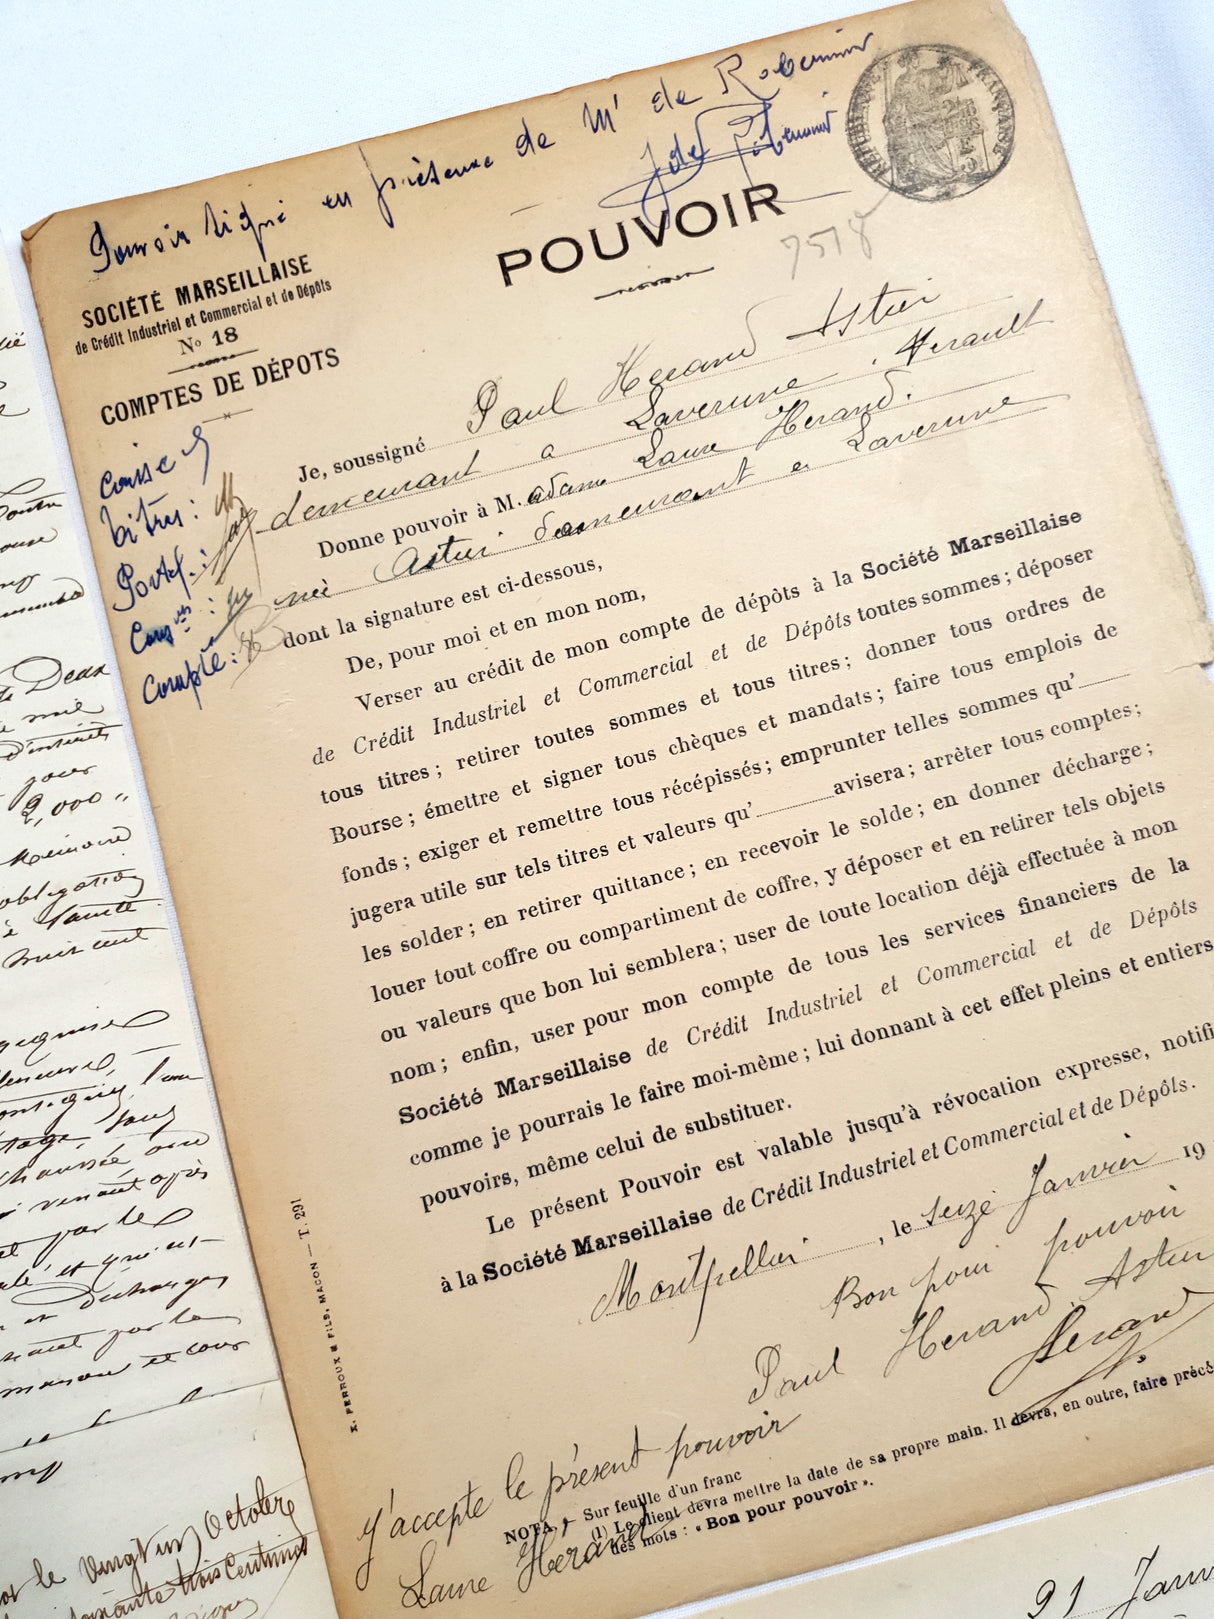 Pouvoir signé en présence de Mr de Robernier
J de Robernier
RÉPUBLIQUE FRANÇAISE
POUVOIR
7518
SOCIÉTÉ MARSEILLAISE
de Crédit Industriel et Commercial et de Dépôts
No 18
COMPTES DE DÉPOTS
Caisse
titres :
Portef. :
Compte :
Je, soussigné Paul Herand Astier
demeurant a Laverune. Herault
Donne pouvoir à M.adame Laure Herand.
née Astier demeurant a Laverune
dont la signature est ci-dessous,
De, pour moi et en mon nom,
Verser au crédit de mon compte de dépôts à la Société Marseillaise
de Crédit Industriel et Commercial et de Dépôts toutes sommes ; déposer
tous titres ; retirer toutes sommes et tous titres ; donner tous ordres de
Bourse ; émettre et signer tous chèques et mandats ; faire tous emplois de
fonds ; exiger et remettre tous récépissés ; emprunter telles sommes qu'
jugera utile sur tels titres et valeurs qu' avisera ; arrêter tous comptes ;
les solder ; en retirer quittance ; en recevoir le solde ; en donner décharge ;
louer tout coffre ou compartiment de coffre, y déposer et en retirer tels objets
ou valeurs que bon lui semblera ; user de toute location déjà effectuée à mon
nom ; enfin, user pour mon compte de tous les services financiers de la
Société Marseillaise de Crédit Industriel et Commercial et de Dépôts
comme je pourrais le faire moi-même ; lui donnant à cet effet pleins et entiers
pouvoirs, même celui de substituer.
Le présent Pouvoir est valable jusqu'à révocation expresse, notifi
à la Société Marseillaise de Crédit Industriel et Commercial et de Dépôts.
Montpellier, le seize Janvier 19
Bon pour pouvoir
Paul Herand Astier
Herand
J'accepte le présent pouvoir
Laure Herand
NOTA. — Sur feuille d'un franc
(1) Le client devra mettre la date de sa propre main. Il devra, en outre, faire précé
des mots : « Bon pour pouvoir ».
X. PERROUX & FILS, MACON — T. 291
Deux
mil
d'intérêts
pour
2,000 "
obligation
huit cent
tage, sous
chaussée
venant après
et par le
et qu'est
le vingt un Octobre
soixante trois Centimes
21 Janv